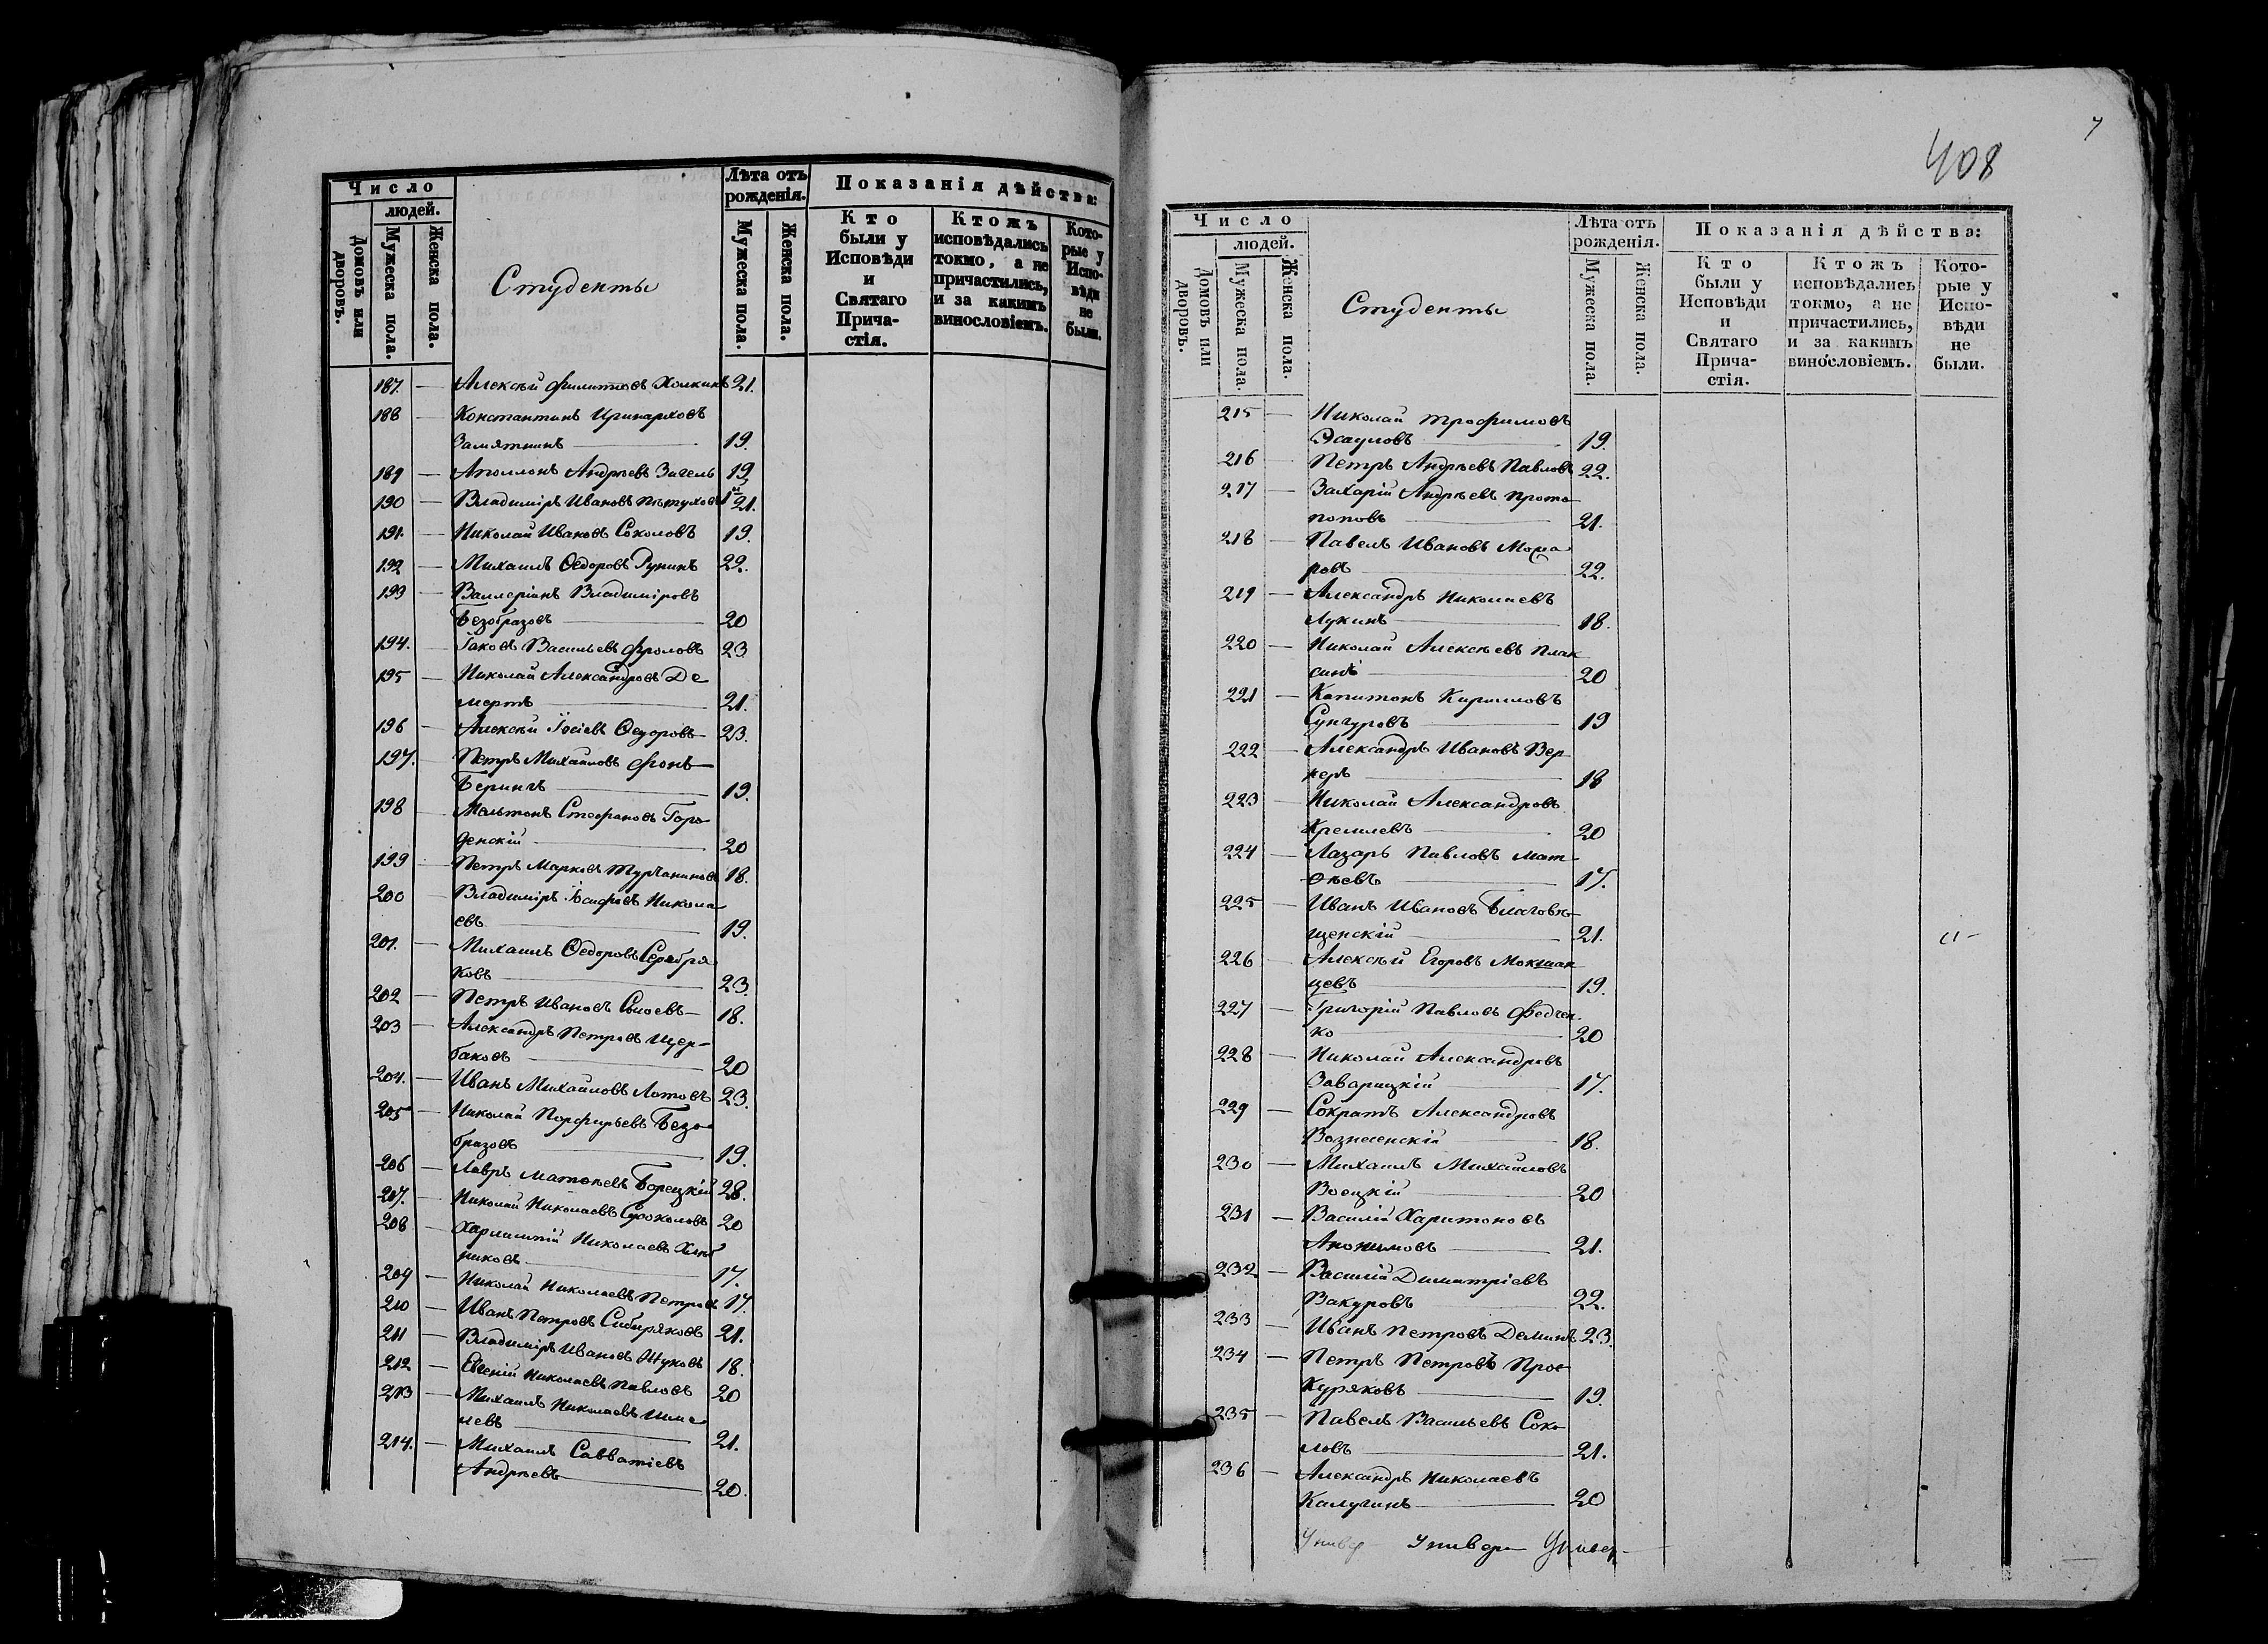 Число
людей.
Домовъ или дворовъ.
Мужеска пола.
Женска пола.
Студенты
Лѣта отъ рожденія.
Мужеска пола.
Женска пола.
Показанія дѣйства:
Кто были у Исповѣди и Святаго Прича-
стія.
Ктожъ исповѣдались токмо, а не причастились, и за какимъ винословіемъ.
Кото-
рые у Испо-
вѣди не были.
187. — Алексѣй Филиповъ Холкинъ 21.
188 — Константинъ Иринарховъ
Замятнинъ — 19.
189 — Аполлонъ Андреевъ Загель 19
190 — Владиміръ Ивановъ Пѣтуховъ 1й 21.
191. — Николай Ивановъ Соколовъ 19.
192 — Михаилъ Ѳедоровъ Рунинъ 22.
193 — Валлеріанъ Владиміровъ
Безобразовъ — 20
194. Іаковъ Васильевъ Фроловъ 23
195 — Николай Александровъ Де
мертъ — 21.
196 — Алексѣй Іосіевъ Ѳедоровъ — 23.
197. Петръ Михайловъ Фонъ —
Берингъ — 19.
198 Мельтонъ Стефановъ Горо
денскій — 20
199 — Петръ Марковъ Турчаниновъ 18.
200 — Владиміръ Іосифовъ Никола
евъ — 19.
201. — Михаилъ Ѳедоровъ Серебря
ковъ — 23.
202 — Петръ Ивановъ Сысоевъ — 18.
203 — Александръ Петровъ Щер-
баковъ — 20
204. — Иванъ Михайловъ Лотовъ 23.
205 — Николай Порфирьевъ Безо
бразовъ — 19.
206 — Лавръ Матѳѣевъ Борецкій 28.
207. — Николай Николаевъ Сроколовъ 20
208 — Харлампій Николаевъ Хлѣб
никовъ — 17.
209 — Николай Николаевъ Петровъ 17.
210 — Иванъ Петровъ Сибиряковъ 21.
211 — Владиміръ Ивановъ Жуковъ 18.
212 — Евгеній Николаевъ Павловъ 20
213 — Михаилъ Николаевъ Шме
левъ — 21.
214. — Михаилъ Савватіевъ
Андреевъ — 20.
408
Число
людей.
Домовъ или дворовъ.
Мужеска пола.
Женска пола.
Студенты
Лѣта отъ рожденія.
Мужеска пола.
Женска пола.
Показанія дѣйства:
Кто были у Исповѣди и Святаго Прича-
стія.
Ктожъ исповѣдались токмо, а не причастились, и за какимъ винословіемъ.
Кото-
рые у Испо-
вѣди не были.
215 — Николай Трофимовъ
Эсауловъ — 19.
216 — Петръ Андреевъ Павловъ 22.
217 — Захарій Андреевъ Прото
поповъ — 21.
218 — Павелъ Ивановъ Мака
ровъ — 22.
219 — Александръ Николаевъ
Лукинъ — 18.
220 — Николай Алексѣевъ Плак
синъ — 20
221 — Капитонъ Кирилловъ
Сунгуровъ — 19
222 — Александръ Ивановъ Вер
неръ — 18
223 — Николай Александровъ
Кремлевъ — 20
224 — Лазарь Павловъ Мат
ѳѣевъ — 17.
225 — Иванъ Ивановъ Благовѣ-
щенскій — 21.
226 — Алексѣй Егоровъ Мокшан
цевъ — 19.
227 — Григорій Павловъ Федчен
ко — 20
228 — Николай Александровъ
Заварицкій — 17.
229 — Сократъ Александровъ
Вознесенскій — 18.
230 — Михаилъ Михайловъ
Воецкій — 20
231 — Василій Харитоновъ
Анонимовъ — 21.
232 — Василій Димитріевъ
Вакуровъ — 22.
233 — Иванъ Петровъ Деминъ 23.
234 — Петръ Петровъ Прос
куряковъ — 19.
235 — Павелъ Васильевъ Соко
ловъ — 21.
236 — Александръ Николаевъ
Калугинъ — 20
Универ Универ Универ